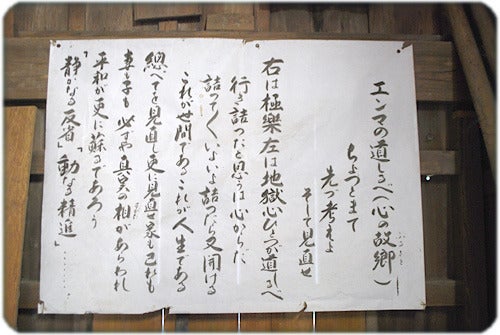 エンマの道しるべ（心の故郷）
ふるさと
ちょっとまて
先づ考えよ
そして見直せ
右は極樂左は地獄心ひとつが道しるべ
行き詰ったと思うは心からだ
詰って〱いよいよ詰ったら又開ける
これが世間であるこれが人生である
總べてを見直し更に見直せ家も己れも
妻も子も必ずや真実の相があらわれ
平和が更に蘇るであろう
「静かなる反省」「動なる精進」